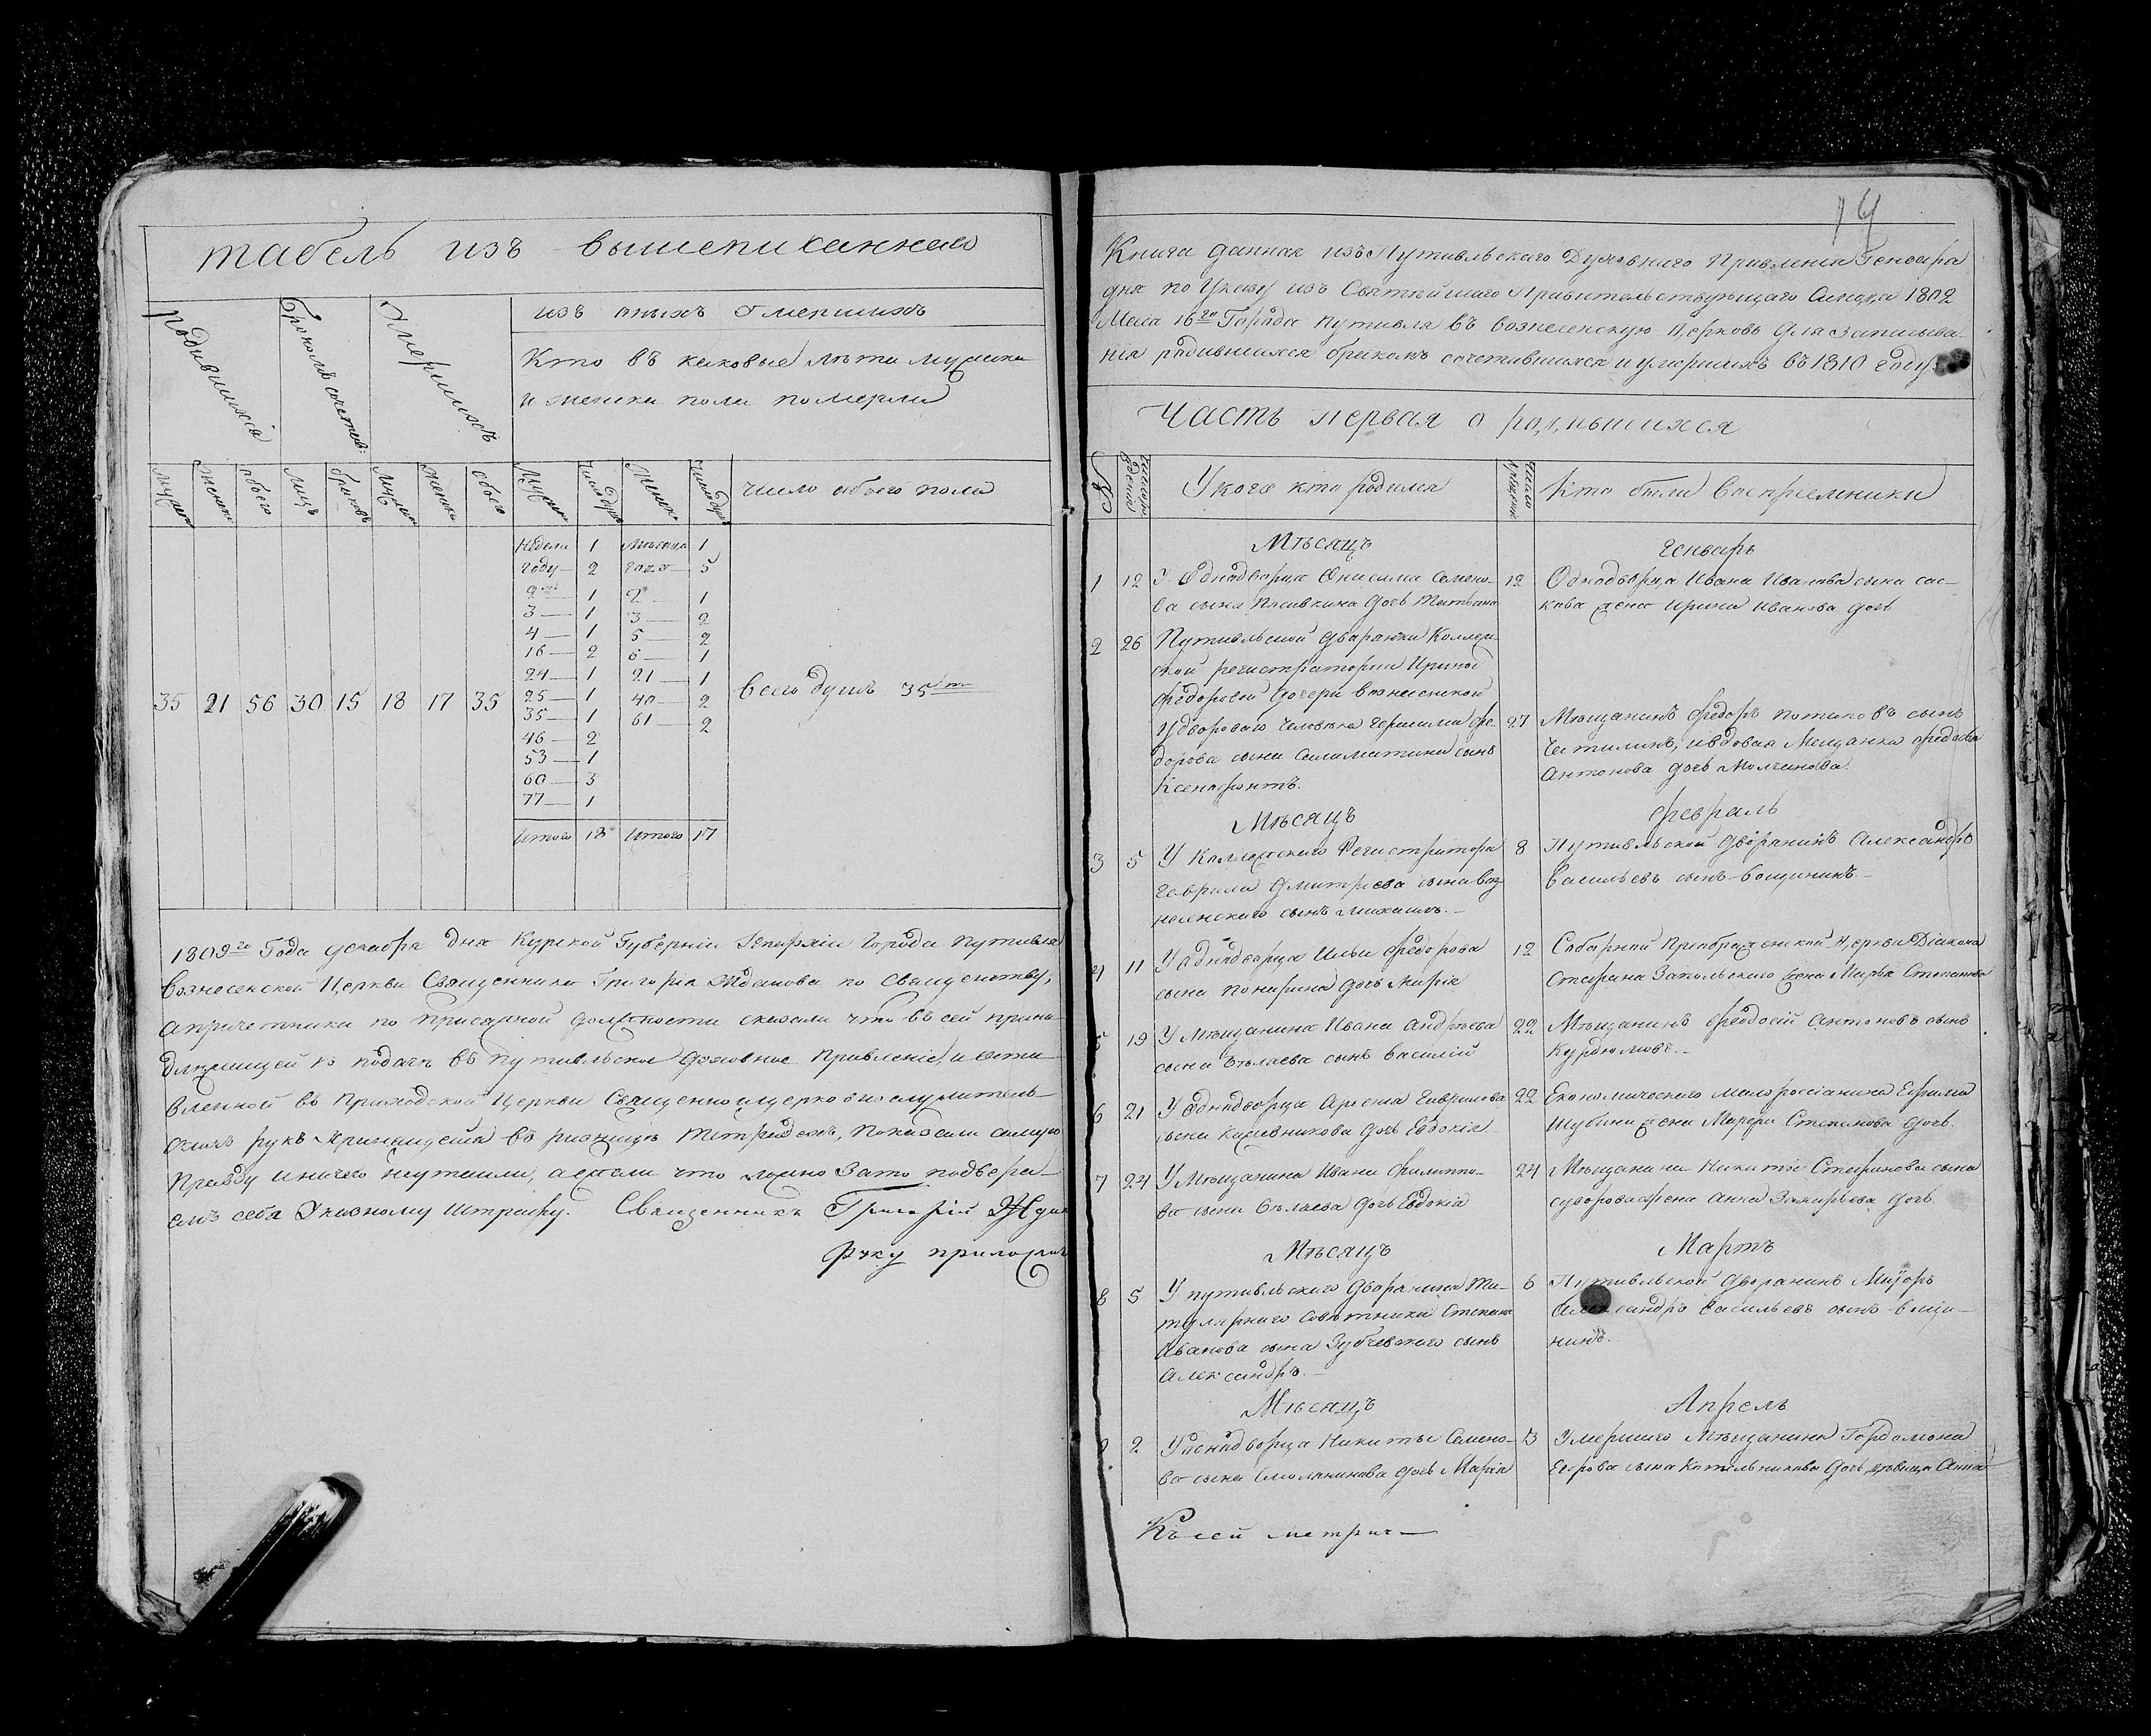 табель изъ вышеписаннаго
родившихся
Бракомъ сочетав:
Умершихъ
изъ оныхъ умершихъ
Кто въ каковые лѣта мужска
и женска пола померли
мужеск
женска
обоего
лицъ
браковъ
мужска
женска
обоего
мужеска
число душъ
женска
число душъ
число обоего пола
недели 1 месяца 1
году 2 году 5
2 1 2 1
3 1 3 2
4 1 5 2
16 2 6 1
24 1 21 1
25 1 40 2
35 1 61 2
46 2
53 1
60 3
77 1
35 21 56 30 15 18 17 35
всего душъ 35
итого 18 итого 17
1809го Года декабря дня Курской Губерніи Епархіи Города Путивля
Вознесенской Церкви Священника Григорія Жданова по Священству,
апричетники по присяжной должности сказали что въ сей прина-
длежащей къ подачѣ въ Путивльское духовное Правленіе, и оста-
вленной въ Приходской Церкви Священно ицерковнослужитель-
скихъ рукъ въ ризницѣ тетрадехъ, показали самую
правду иничего неутаили, аежели что ложно Зато подверга-
емъ себя Указному штрафу. Священникъ Григорій Ждан
руку приложилъ
14
Книга данная изъ Путивльскаго Духовнаго Правленія Генваря
дня по Указу изъ Святейшаго Правительствующаго Синода 1802
Маіа 16го Города Путивля въ вознесенскую Церковь для записыва-
нія родившихся бракомъ сочетавшихся и умершихъ въ 1810 году
Часть первая о родившихся
№
число рожденія
Укого кто родился
число крещенія
Кто были восприемники
Мѣсяцъ Генварь
1 12 У Однодворца Онисима Семено-
ва сына Пасивкина дочь Татіана
12 Однодворца Ивана Иванова сына сас-
кова жена Ирина Иванова дочь
2 26 Путивльской дворянки Коллеж-
ской регистраторши Ирины
федоровой дочери вознесенской
удвороваго человека Герасима фе-
дорова сына Саламатина сынъ
Ксенофонтъ.
27 Мѣщанинъ федоръ Потаповъ сынъ
Чатилинъ, ивдовая мещанка федосья
Антонова дочь Молчанова.
Мѣсяцъ февраль
3 5 У Коллежскаго Регистратора
Гаврила дмитріева сына воз-
несенскаго сынъ михаилъ.
8 Путивльской дворянинъ Александръ
Васильевъ сынъ вощининъ.
4 11 У однодворца Ильи федорова
сына Понарина дочь Марія
12 Соборной Преображенской Церкви Діакона
Стефана Запольскаго жена Марья Степанова
5 19 У Мѣщанина Ивана андреева
сына бѣлаева сынъ василій
22 Мѣщанинъ феодосій антоновъ сынъ
Курдюмовъ.
6 21 У однодворца Арсенія Гаврилова
сына Кожевникова дочь Евдокія
22 Економическаго малороссіанина Ефима
Шубина жена Марфа Степанова дочь
7 24 У Мѣщанина Ивана филиппо-
ва сына бѣлаева дочь Евдокія
24 Мѣщанина Никиты Стефанова сына
суворова жена анна Захарьева дочь
Мѣсяцъ Мартъ
8 5 У путивльскаго дворянина ти-
тулярнаго совѣтника Степана
Иванова сына Зубчевскаго сынъ
Александръ.
6 Путивльской дворянинъ Маіоръ
Александръ Васильевъ сынъ вощи-
нинъ.
Мѣсяцъ Апрель
9 2 У однодворца Никиты Семено-
ва сына Смолянинова дочь Марія
3 Умершаго Мѣщанина
Егорова сына Котельникова дочь девица Анна
Къ сей метрич